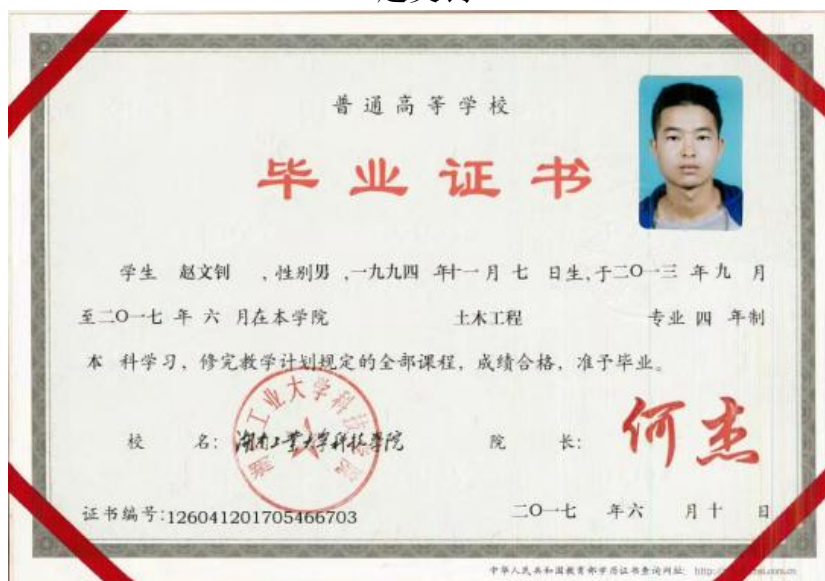 普通高等学校
毕业证书
学生 赵文钊 ,性别男 ,一九九四 年十一月 七 日生,于二〇一三 年 九 月
至二〇一七 年 六 月在本学院 土木工程 专业 四 年制
本 科学习,修完教学计划规定的全部课程,成绩合格,准予毕业。
校 名: 湖南工业大学科技学院 院 长: 何杰
湖南工业大学科技学院
证书编号:126041201705466703 二〇一七 年六 月十 日
中华人民共和国教育部学历证书查询网址: http://